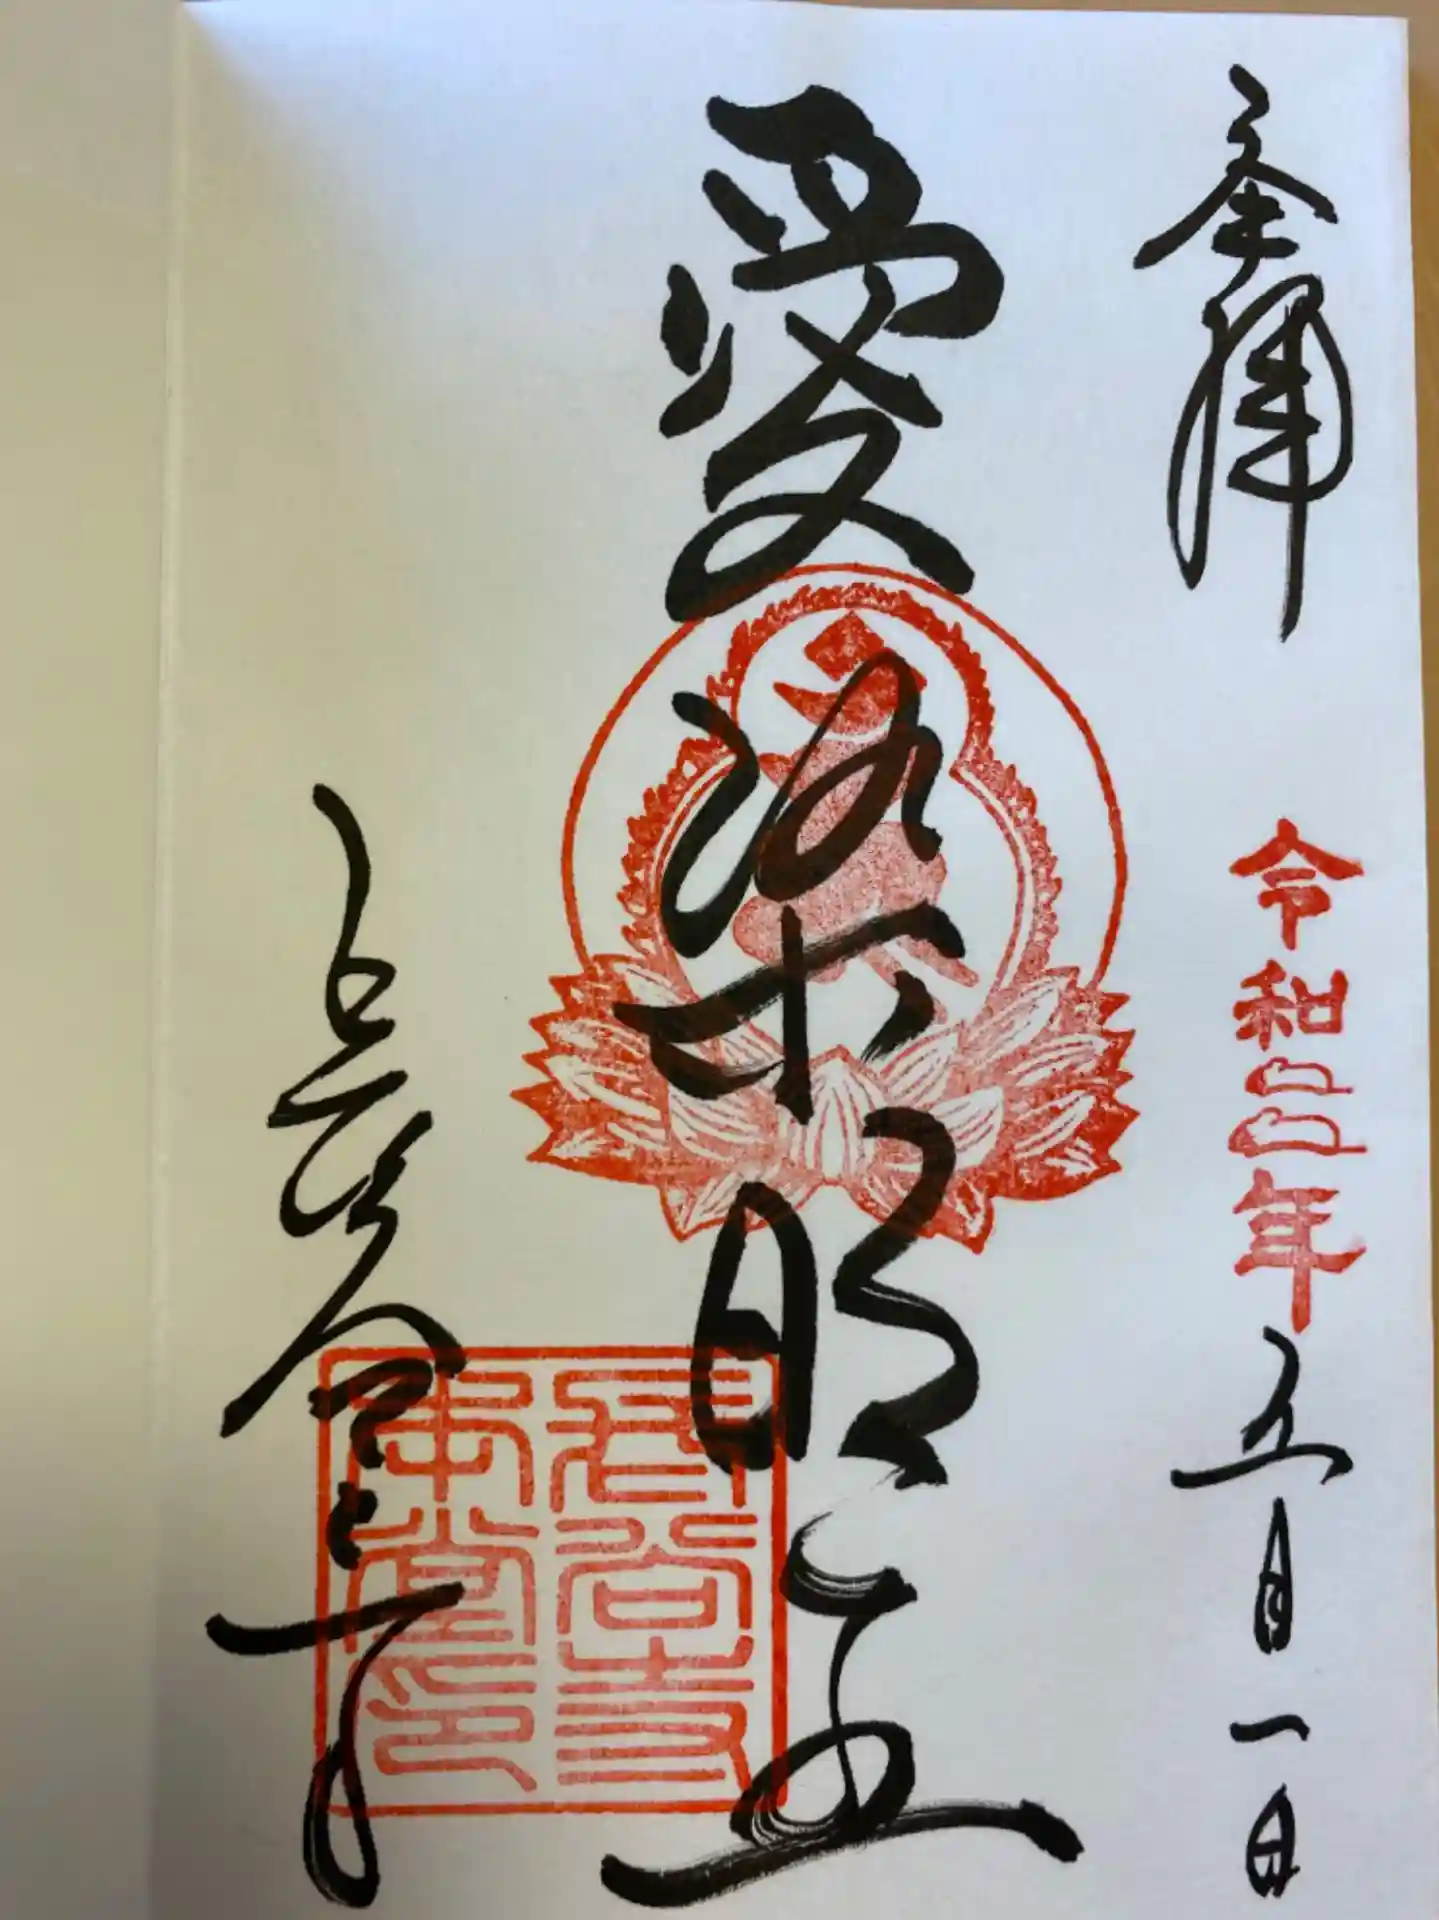 奉拝
令和二年五月一日
愛染明王
長谷寺
長谷寺
本堂印